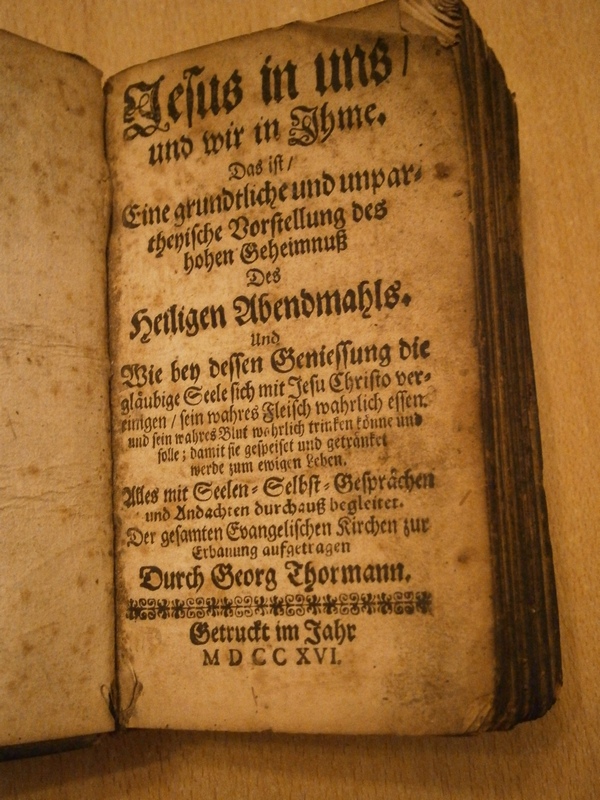 Jesus in uns /
und wir in Ihme.
Das ist /
Eine grundtliche und unpar-
theyische Vorstellung des
hohen Geheimnuß
Des
Heiligen Abendmahls.
Und
Wie bey dessen Geniessung die
gläubige Seele sich mit Jesu Christo ver-
einigen / sein wahres Fleisch wahrlich essen.
und sein wahres Blut wahrlich trinken könne und
solle ; damit sie gespeiset und getränket
werde zum ewigen Leben.
Alles mit Seelen- Selbst- Gesprächen
und Andachten durchauß begleitet.
Der gesamten Evangelischen Kirchen zur
Erbauung aufgetragen
Durch Georg Thormann.
Getruckt im Jahr
M D C C XVI.